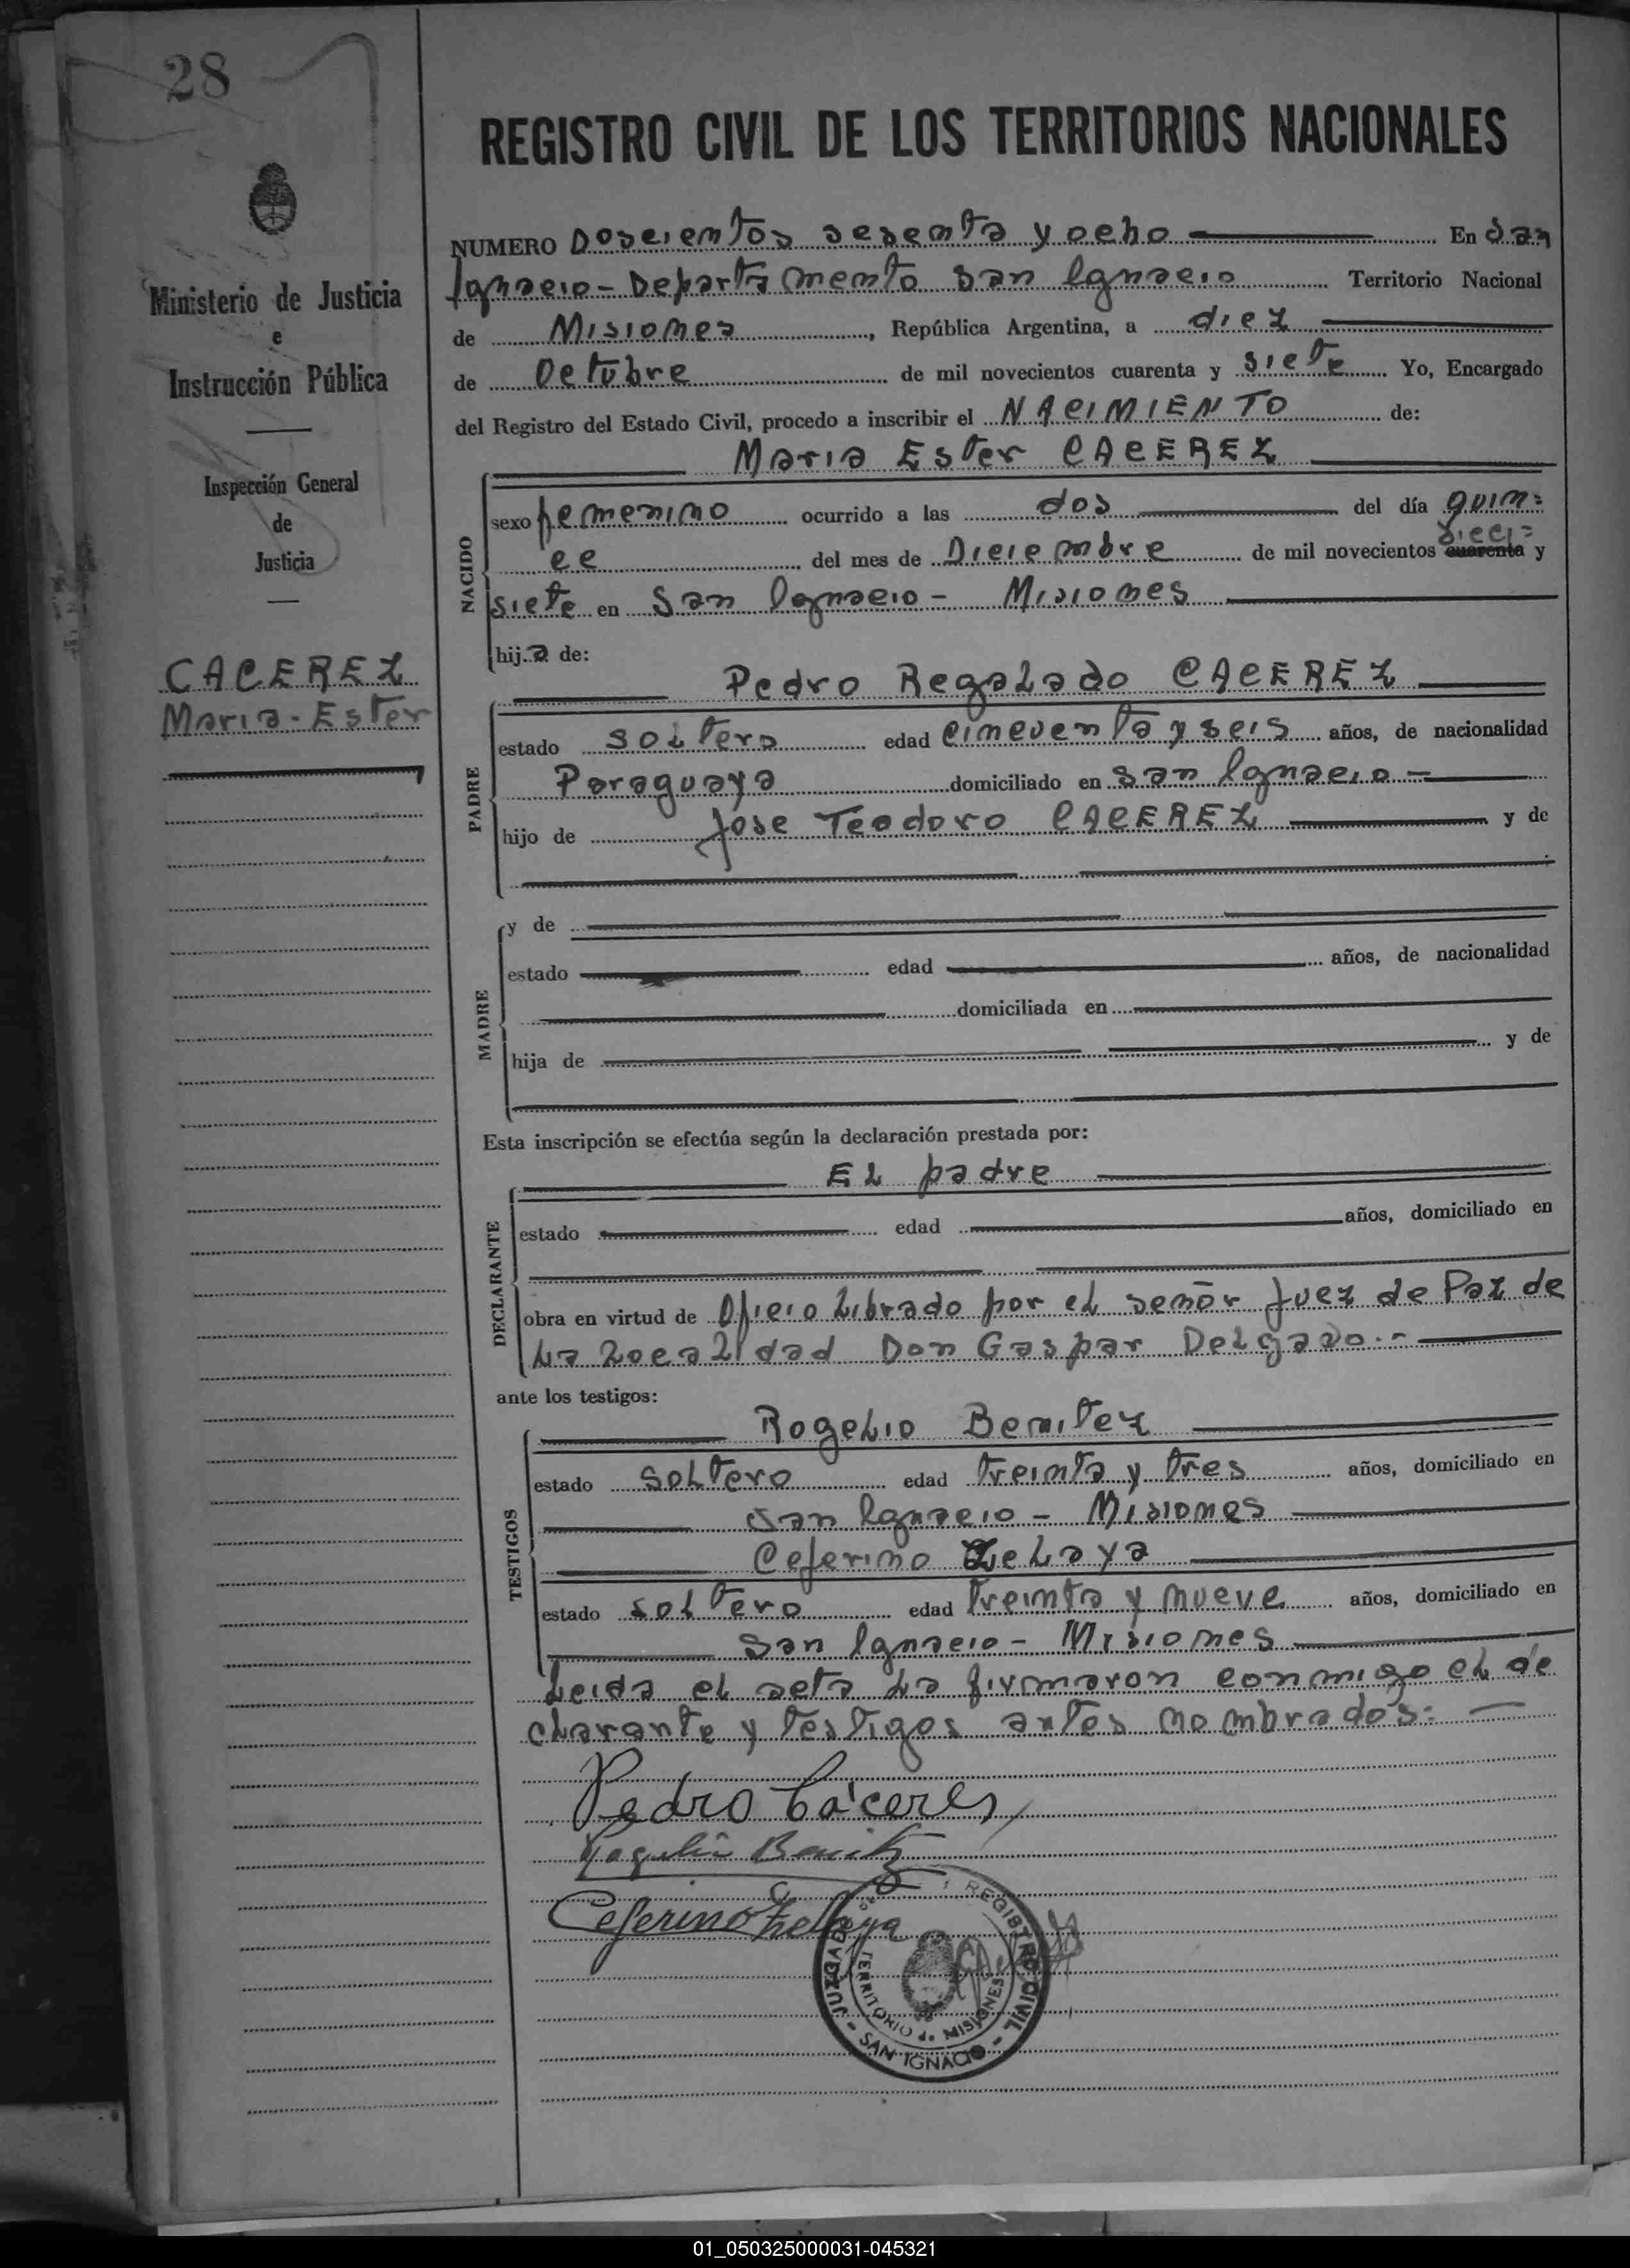 28
Ministerio de Justicia
e
Instrucción Pública
Inspección General
de
Justicia
CACEREZ
Maria-Ester
REGISTRO CIVIL DE LOS TERRITORIOS NACIONALES
NUMERO Doscientos sesenta y ocho En San
Ignacio - Departamento San Ignacio Territorio Nacional
de Misiones, República Argentina, a diez
de Octubre de mil novecientos cuarenta y siete Yo, Encargado
del Registro del Estado Civil, procedo a inscribir el NACIMIENTO de:
Maria Ester CACEREZ
NACIDO
sexo femenino ocurrido a las dos del día quin=
dieci=
ce del mes de Diciembre de mil novecientos cuarenta y
siete en San Ignacio - Misiones
hija de:
Pedro Regalado CACEREZ
PADRE
estado soltero edad cincuenta y seis años, de nacionalidad
Paraguaya domiciliado en San Ignacio -
hijo de Jose Teodoro CACEREZ y de
MADRE
y de
estado edad años, de nacionalidad
domiciliada en
hija de y de
Esta inscripción se efectúa según la declaración prestada por:
El padre
DECLARANTE
estado edad años, domiciliado en
obra en virtud de Oficio librado por el señor Juez de Paz de
La Localidad Don Gaspar Delgado.-
ante los testigos:
Rogelio Benitez
TESTIGOS
estado soltero edad treinta y tres años, domiciliado en
San Ignacio - Misiones
Ceferino Zelaya
estado soltero edad treinta y nueve años, domiciliado en
San Ignacio - Misiones
Leida el acta la firmaron conmigo el de
clarante y testigos antes nombrados: -
Pedro Cáceres
Rogelio Benitez
Ceferino Zelaya
REGISTRO CIVIL - SAN IGNACIO - JUZGADO
TERRITORIO de MISIONES
01_050325000031-045321